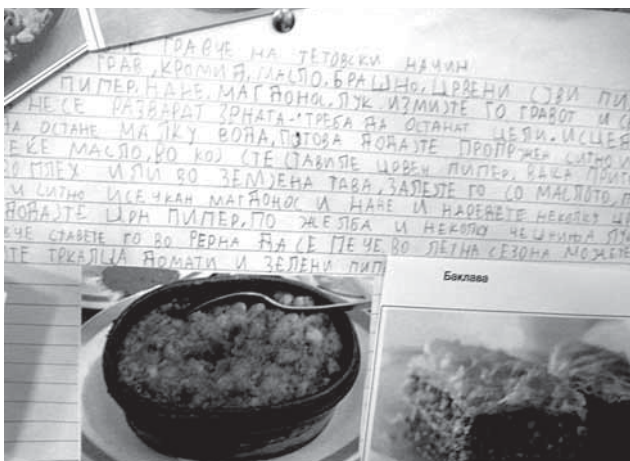 ГРАВЧЕ НА ТЕТОВСКИ НАЧИН
ГРАВ, КРОМИД, МАСЛО, БРАШНО, ЦРВЕНИ СУВИ
ПИПЕР, НАНЕ, МАГДОНОС, ЛУК. ИЗМИЈТЕ ГО ГРАВОТ И
НЕ СЕ РАЗВАРАТ ЗРНАТА-ТРЕБА ДА ОСТАНАТ ЦЕЛИ.
ОСТАНЕ МАЛКУ ВОДА, ПОТОА ДОДАЈТЕ ПРОПРЖЕН СИТНО
МАСЛО, ВО КОЈ СТЕ СТАВИЛЕ ЦРВЕН ПИПЕР,
ИЛИ ВО ЗЕМЈЕНА ТАВА, ЗАЛЕЈТЕ ГО СО МАСЛОТО,
И СИТНО ИСЕЧКАН МАГДОНОС И НАНЕ И НАРЕДЕТЕ НЕКОЛКУ
ДОДАЈТЕ ЦРН ПИПЕР, ПО ЖЕЛБА И НЕКОЛКУ ЧЕШНИЊА
СТАВЕТЕ ГО ВО РЕРНА ДА СЕ ПЕЧЕ, ВО ЛЕТНА СЕЗОНА МОЖЕТЕ
ТРКАЛЦА ДОМАТИ И ЗЕЛЕНИ
Баклава